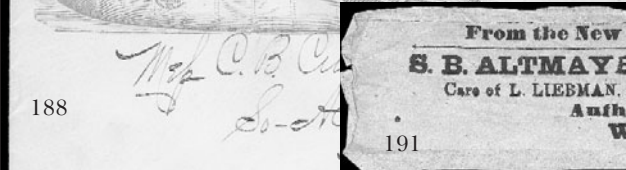 C. B.
188
From the New
S. B. ALTMAY
Care of L. LIEBMAN,
Auth
W
191